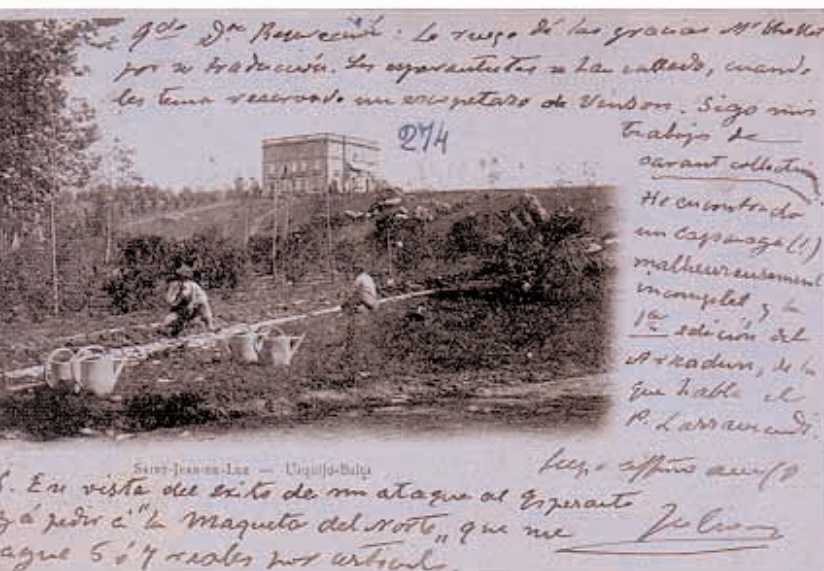 qdo Dn Resurrección. Le ruego dé las gracias Mr
por su traducción. Los esperantistas se han callado, cuando
les tenía reservado un escopetazo de Vinson. Sigo mis
274
trabajos de
savant collectionn
He encontrado
un (!)
malheureusement
incomplet y la
1ra edición del
de la
que habla el
P. Larramendi.
Saint-Jean-de-Luz — Urquijo-Baïta
Suyo affmo amigo
Julio
S. En vista del éxito de mi ataque al Esperanto
á pedir á "la Maqueta del Norte" que me
ague 5 ó 7 reales por artículo.